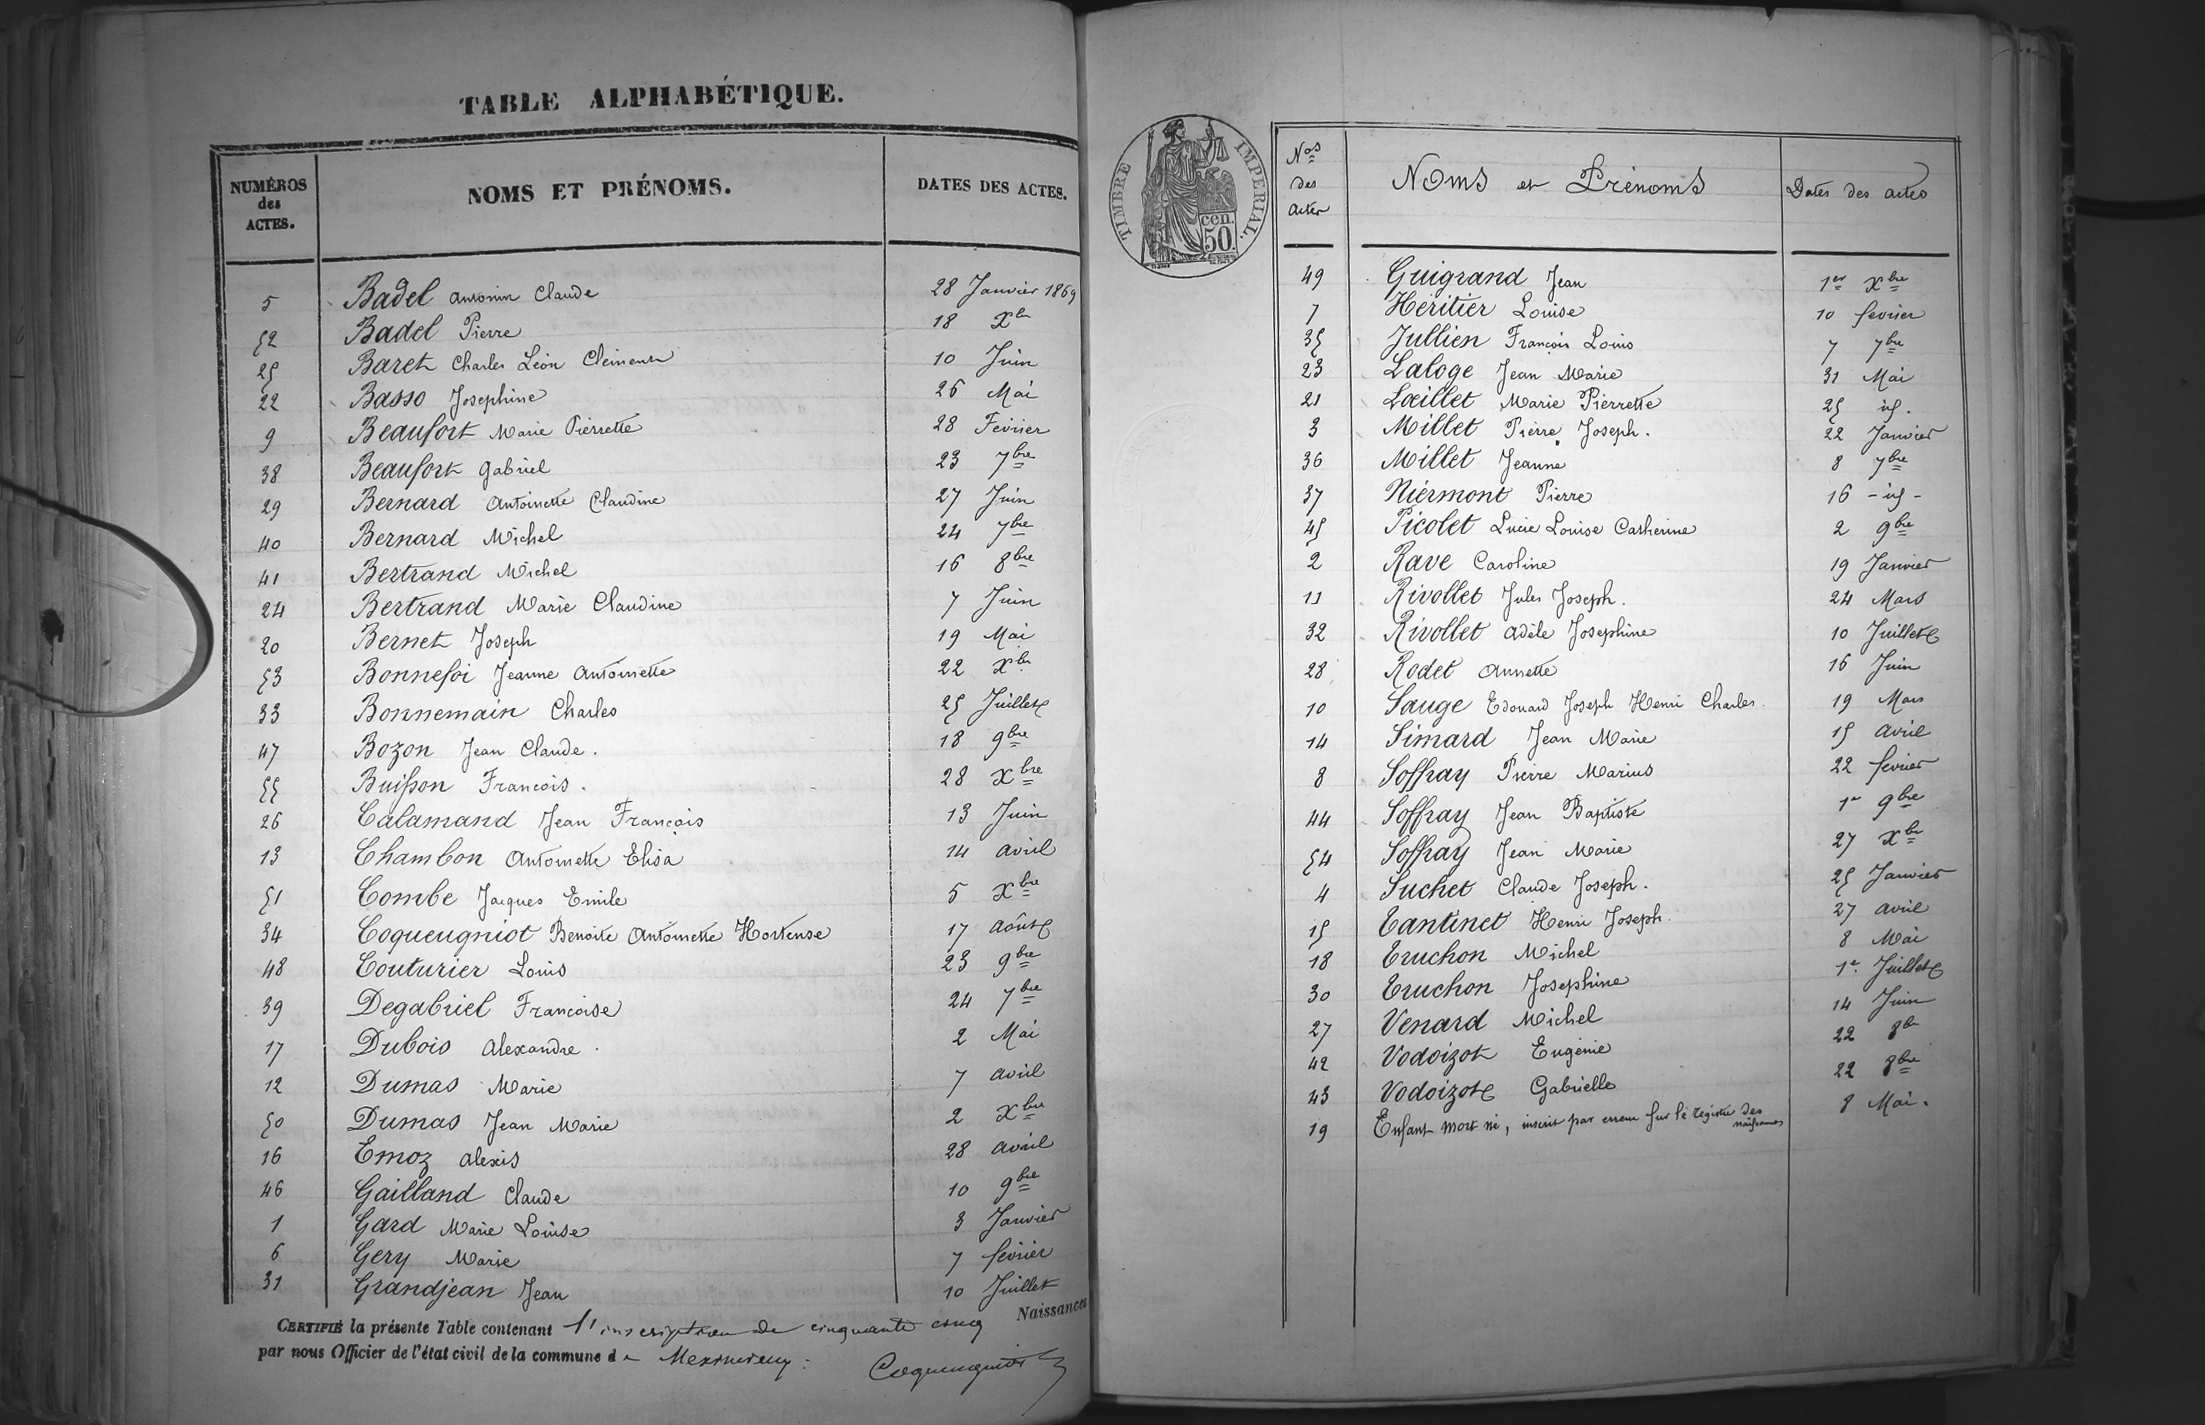 TABLE ALPHABÉTIQUE.
NUMÉROS des ACTES. NOMS ET PRÉNOMS. DATES DES ACTES.
5 Badel Antonin Claude 28 Janvier 1869
52 Badel Pierre 18 Xbre
25 Baret Charles Léon Clément 10 Juin
22 Basso Josephine 26 Mai
9 Beaufort Marie Pierrette 28 Février
38 Beaufort Gabriel 23 7bre
29 Bernard Antoinette Claudine 27 Juin
40 Bernard Michel 24 7bre
41 Bertrand Michel 16 8bre
24 Bertrand Marie Claudine 7 Juin
20 Bernet Joseph 19 Mai
53 Bonnefoi Jeanne Antoinette 22 Xbre
33 Bonnemain Charles 25 Juillet
47 Bozon Jean Claude. 18 9bre
55 Buisson François. 28 Xbre
26 Calamand Jean François 13 Juin
13 Chambon Antoinette Elisa 14 Avril
51 Combe Jacques Emile 5 Xbre
34 Coqueugniot Benoite Antoinette Hortense 17 Août
48 Couturier Louis 23 9bre
39 Degabriel Francoise 24 7bre
17 Dubois Alexandre. 2 Mai
12 Dumas Marie 7 Avril
50 Dumas Jean Marie 2 Xbre
16 Emoz Alexis 28 Avril
46 Gailland Claude 10 9bre
1 Gard Marie Louise 3 Janvier
6 Gery Marie 7 février
31 Grandjean Jean 10 Juillet
Naissances
CERTIFIÉ la présente Table contenant l'inscription de cinquante cinq
par nous Officier de l'état civil de la commune de Meximieux:
Coqueugniot
TIMBRE IMPERIAL.
cen. 50.
Nos des Actes Noms et Prénoms Dates des actes
49 Guigrand Jean 1er Xbre
7 Héritier Louise 10 février
35 Jullien François Louis 7 7bre
23 Laloge Jean Marie 31 Mai
21 Lœillet Marie Pierrette 25 id.
3 Millet Pierre Joseph. 22 Janvier
36 Millet Jeanne 8 7bre
37 Niérmont Pierre 16 - id -
45 Picolet Lucie Louise Catherine 2 9bre
2 Rave Caroline 19 Janvier
11 Rivollet Jules Joseph. 24 Mars
32 Rivollet Adèle Josephine 10 Juillet
28 Rodet Annette 16 Juin
10 Sauge Edouard Joseph Henri Charles. 19 Mars
14 Simard Jean Marie 15 Avril
8 Soffray Pierre Marius 22 février
44 Soffray Jean Baptiste 1er 9bre
54 Soffray Jean Marie 27 Xbre
4 Suchet Claude Joseph. 25 Janvier
15 Tantinet Henri Joseph. 27 Avril
18 Truchon Michel 8 Mai
30 Truchon Josephine 1er Juillet
27 Venard Michel 14 Juin
42 Vodoizot Eugénie 22 8bre
43 Vodoizot Gabrielle 22 8bre
19 Enfant mort né, inscrit par erreur sur le registre des naissances 8 Mai.